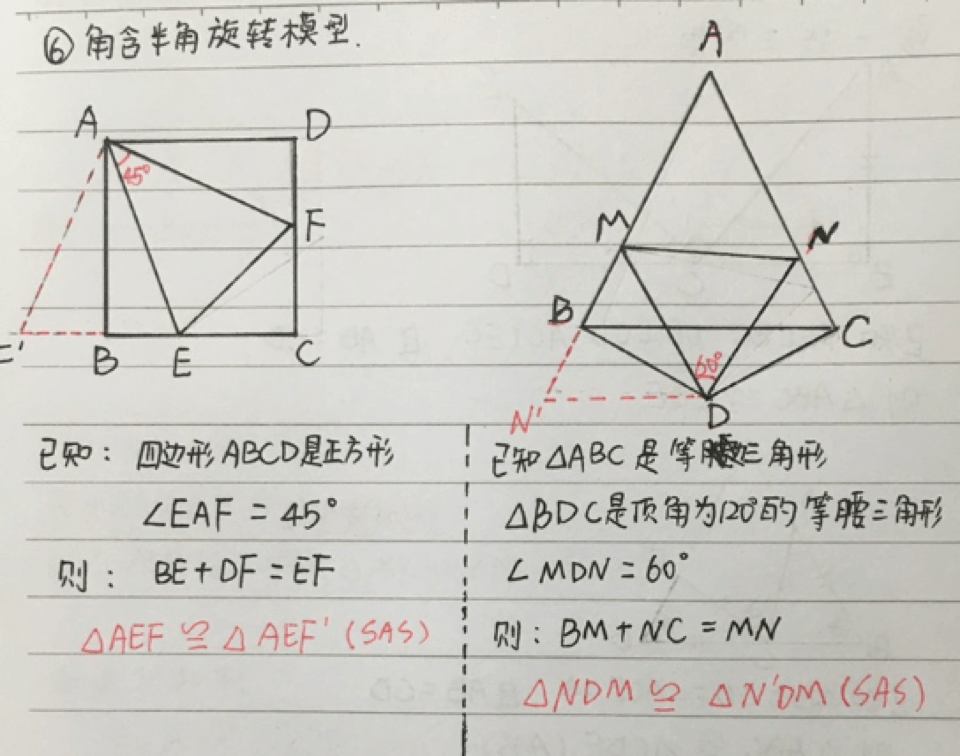 ⑥ 角含半角旋转模型.
A
D
45°
F
E'
B
E
C
A
M
N
B
C
60°
N'
D
已知: 四边形ABCD是正方形
∠EAF = 45°
则: BE+DF=EF
△AEF ≌ △AEF' (SAS)
已知△ABC是等腰三角形
△BDC是顶角为120°的等腰三角形
∠MDN=60°
则: BM+NC=MN
△NDM ≌ △N'DM (SAS)